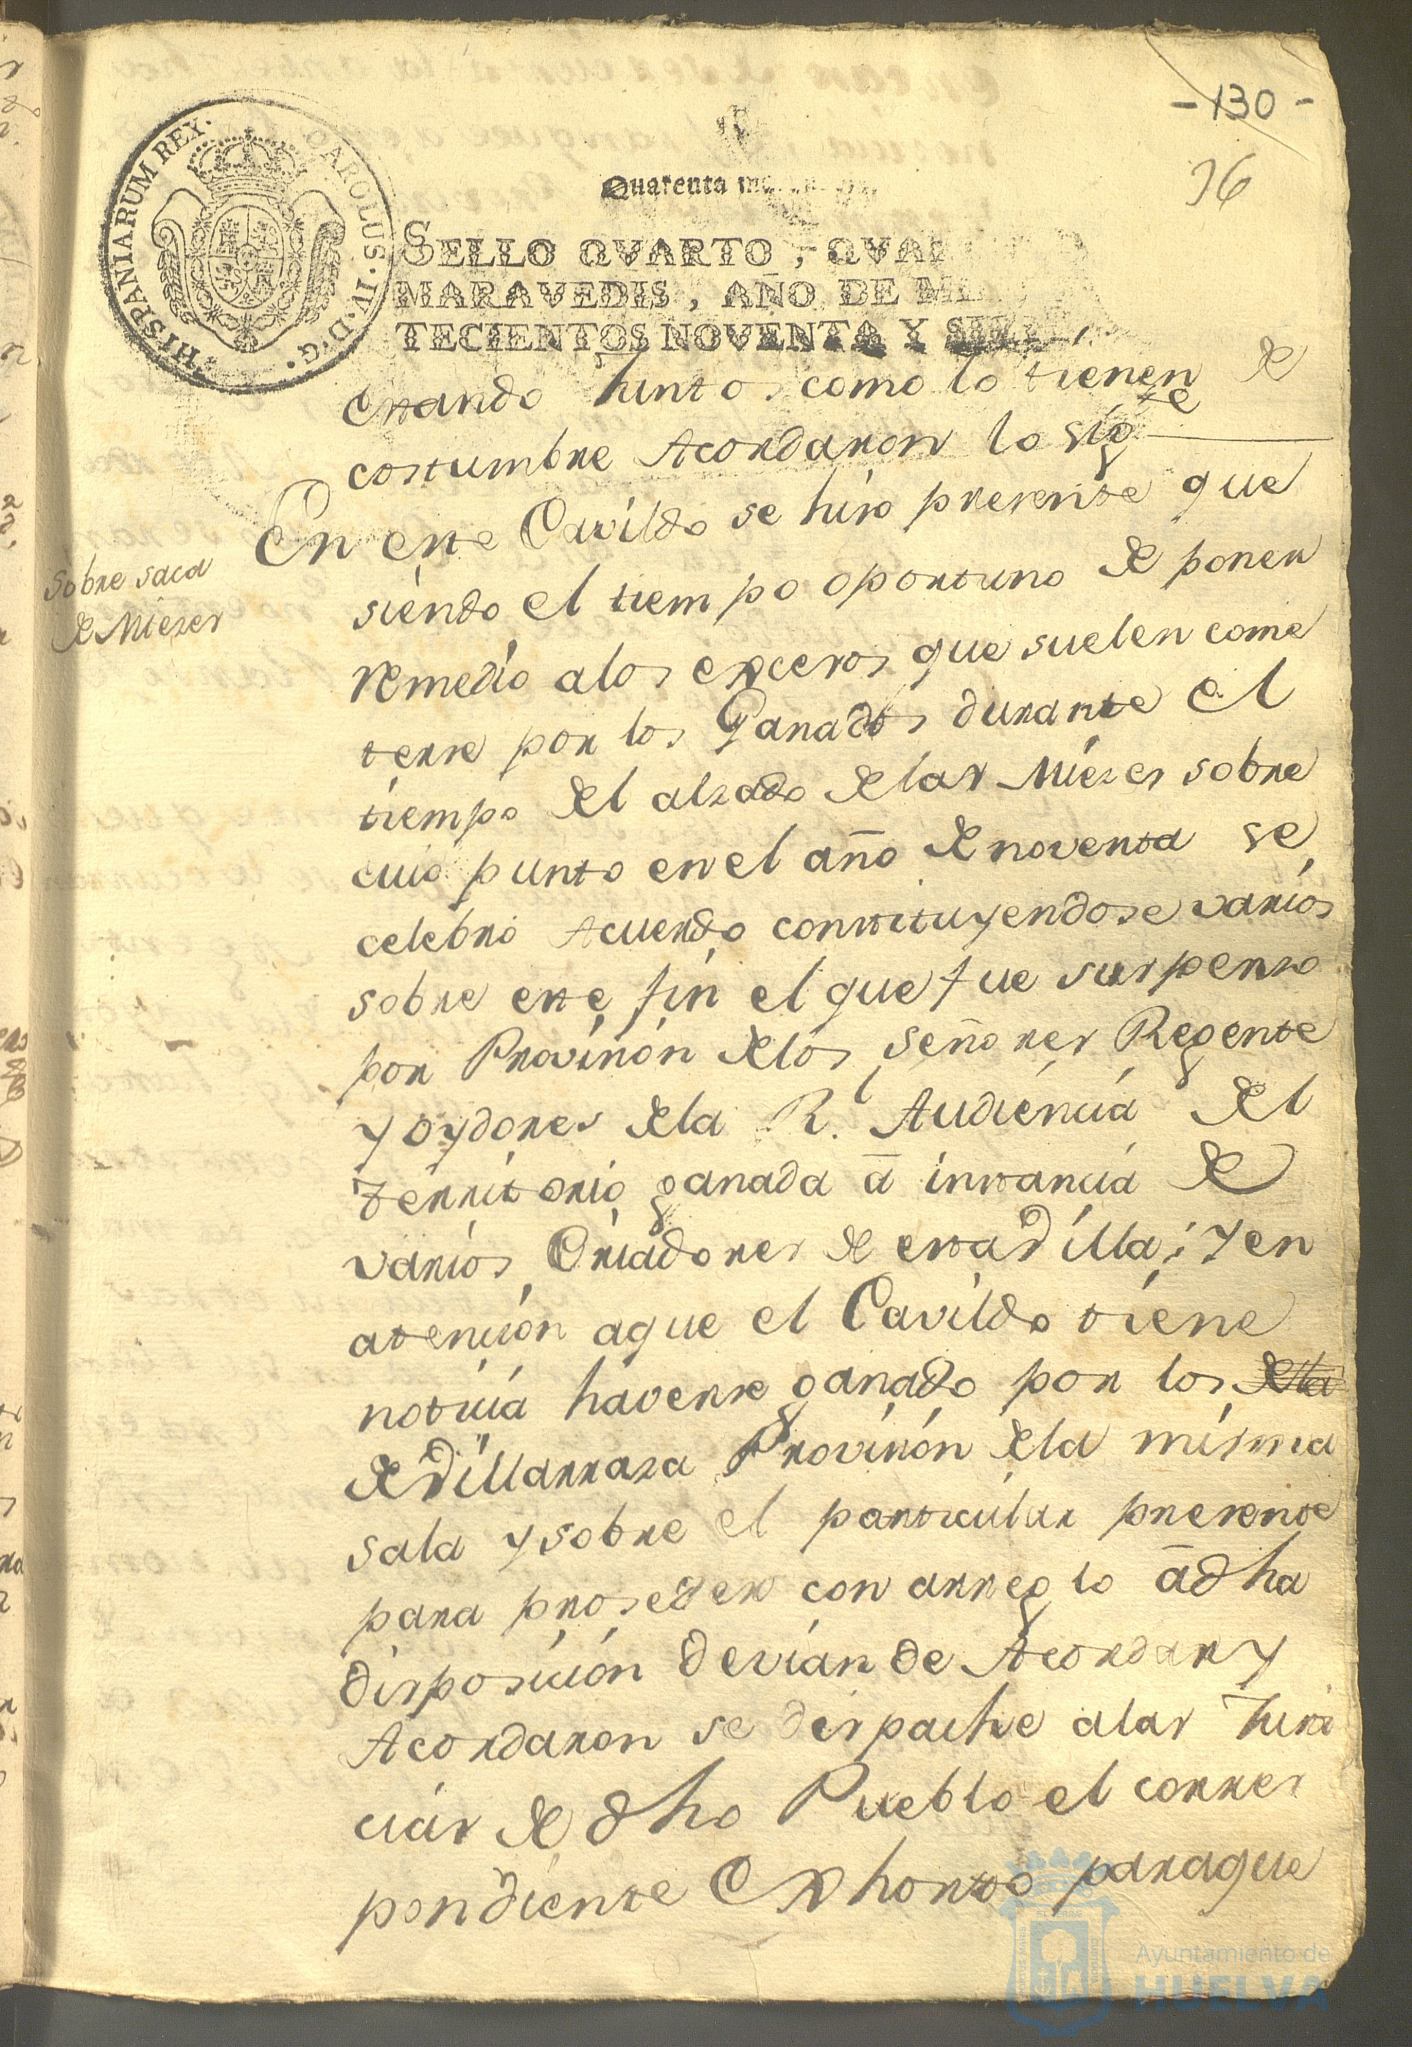 -130-
36
HISPANIARUM REX. CAROLUS·IV·D·G·
Quarenta
SELLO QVARTO, QVAR
MARAVEDIS, AÑO DE MIL
TECIENTOS NOVENTA Y SIETE,
estando Juntos como lo tienen de
costumbre Acordaron lo sigte
Sobre saca
de Mieses
En este Cavildo se hiso presente que
siendo el tiempo oportuno de poner
remedio a los excesos que suelen come
terse por los Ganados durante el
tiempo del alzado delas Mieses sobre
cuio punto en el año de noventa se
celebró Acuerdo constituyendose varios
sobre este fin el que fue suspenso
por Provision delos Señores Regente
y oydores dela Rl. Audiencia del
Territorio ganada á instancia de
varios Criadores de esta Villa; y en
atencion aque el Cavildo tiene
noticia haverse ganado por los dela
de Villarrasa Provision dela misma
sala y sobre el particular presente
para proseder con arreglo á dha
disposicion devian de Acordar y
Acordaron se despache alas Justi
cias de dho Pueblo el corres
pondiente Exhorto paraque
Ayuntamiento de
HUELVA